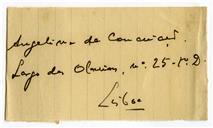 Angelina da Conceição
Largo das Olarias, nº. 25-1º. D.
Lisboa